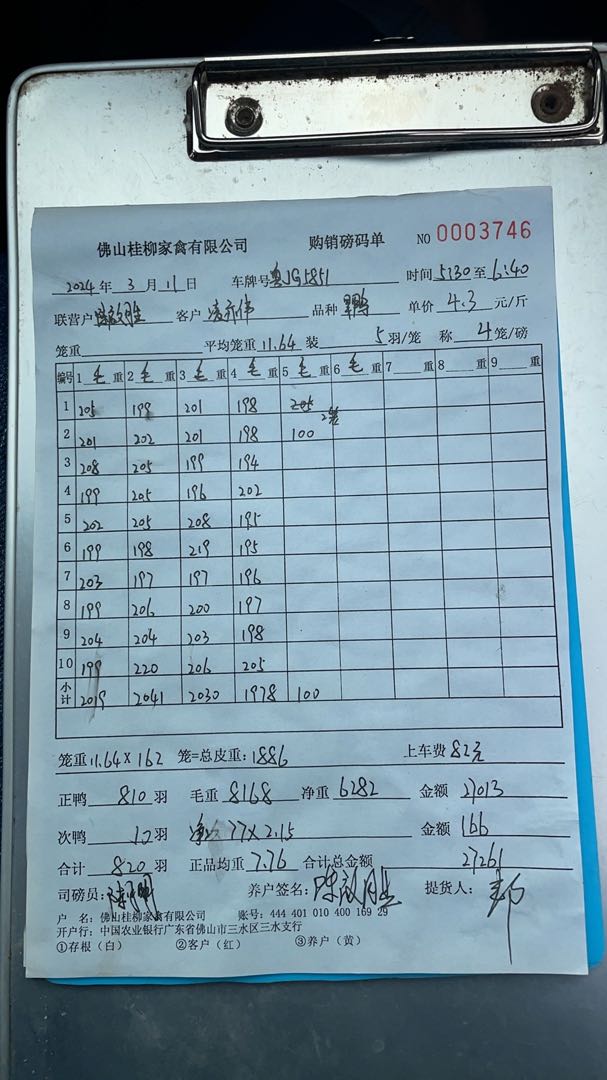 佛山桂柳家禽有限公司 购销磅码单 NO 0003746
2024年 3月 11日 车牌号 粤JG5851 时间 5:30 至 6:40
联营户 客户 品种 单价 4.3 元/斤
笼重 平均笼重 11.64 装 5 羽/笼 称 4 笼/磅
编号 1 毛 重 2 毛 重 3 毛 重 4 毛 重 5 毛 重 6 毛 重 7 重 8 重 9 重
1 205 199 201 198 205
2 201 202 201 198 100
3 208 205 199 194
4 199 205 196 202
5 202 205 208 195
6 199 198 219 195
7 203 197 197 196
8 199 206 200 197
9 204 204 203 198
10 199 220 206 205
小计 2019 2041 2030 1978 100
笼重 11.64 X 162 笼=总皮重: 1886 上车费 82元
正鸭 810 羽 毛重 8168 净重 6282 金额 27013
次鸭 10 羽 77 X 2.15 金额 166
合计 820 羽 正品均重 7.76 合计总金额 27261
司磅员: 养户签名: 提货人:
户 名: 佛山桂柳家禽有限公司 账号: 444 401 010 400 169 29
开户行: 中国农业银行广东省佛山市三水区三水支行
①存根（白） ②客户（红） ③养户（黄）